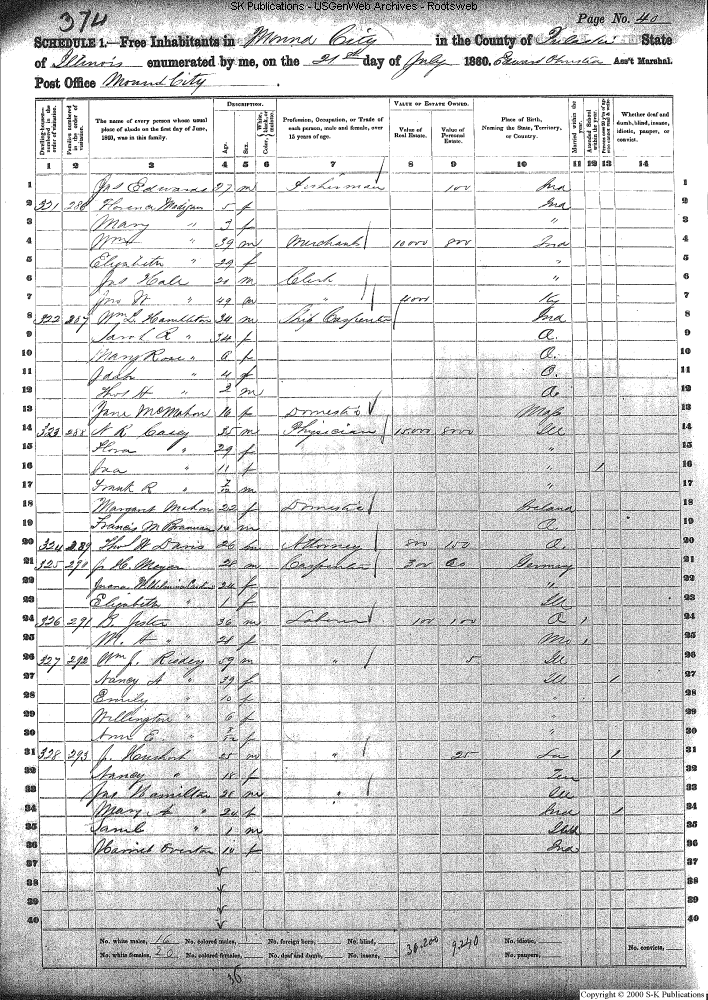 SK Publications - USGenWeb Archives - Rootsweb
374
Page No. 40
SCHEDULE 1.—Free Inhabitants in Mound City in the County of Pulaski State
of Illinois enumerated by me, on the 21st day of July 1860. Edward Ass't Marshal.
Post Office Mound City
Dwelling-houses—numbered in the order of visitation.
Families numbered in the order of visitation.
The name of every person whose usual place of abode on the first day of June, 1860, was in this family.
DESCRIPTION.
Age.
Sex.
Color, White, black, or mulatto.
Profession, Occupation, or Trade of each person, male and female, over 15 years of age.
VALUE OF ESTATE OWNED.
Value of Real Estate.
Value of Personal Estate.
Place of Birth, Naming the State, Territory, or Country.
Married within the year.
Attended School within the year.
Whether deaf and dumb, blind, insane, idiotic, pauper, or convict.
1 2 3 4 5 6 7 8 9 10 11 12 13 14
1 Jas Edwards 27 m Fisherman 100 Ind 1
2 321 286 Florence Madigan 5 f Ind 2
3 Mary " 3 f " 3
4 Wm " 39 m Merchant 10000 800 Ind 4
5 Elizabeth " 29 f " 5
6 Jas Hale 21 m Clerk " 6
7 Jno W " 49 m " 4000 Ky 7
8 322 287 Wm L Hamilton 34 m Ship Carpenter Ind 8
9 Sarah R " 34 f O. 9
10 Mary Rose " 6 f O. 10
11 " 4 f O. 11
12 Thos H " 2 m O. 12
13 Jane McMahon 16 f Domestic Mass 13
14 323 288 N R Casey 35 m Physician 15000 8000 Ill 14
15 Flora " 29 f " 15
16 Ina " 11 f " 1 16
17 Frank R " m " 17
18 Margaret 22 f Domestic Ireland 18
19 Francis M Brannan 14 m O. 19
20 324 289 Thos W Davis 26 m Attorney 800 150 O. 20
21 325 290 J H Meyer 28 m Carpenter 300 Germany 21
22 24 f " 22
23 Elizabeth " 1 f Ill 23
24 326 291 B. Jester 36 m Laborer 100 100 O 1 24
25 M. A " 21 f Mo 1 25
26 327 292 Wm J. Risdey 59 m " 5 Ill 26
27 Nancy A " 39 f Ill 1 27
28 Emily " 10 f " 28
29 Willington " 6 f " 29
30 Ann E. " f " 30
31 328 293 J. 25 m " 25 La 1 31
32 Nancy " 18 f Ten 32
33 Jas Hamilton 28 m " Ill 33
34 Mary A " 20 f Ind 1 34
35 Saml " 1 m 35
36 Harriet Overton 14 f Ind 36
37 37
38 38
39 39
40 40
No. white males, 16 No. colored males, No. foreign born, No. blind, 36.200 9.240 No. idiotic,
No. white females, 20 No. colored females, No. deaf and dumb, No. insane, No. paupers, No. convicts,
36
Copyright © 2000 S-K Publications